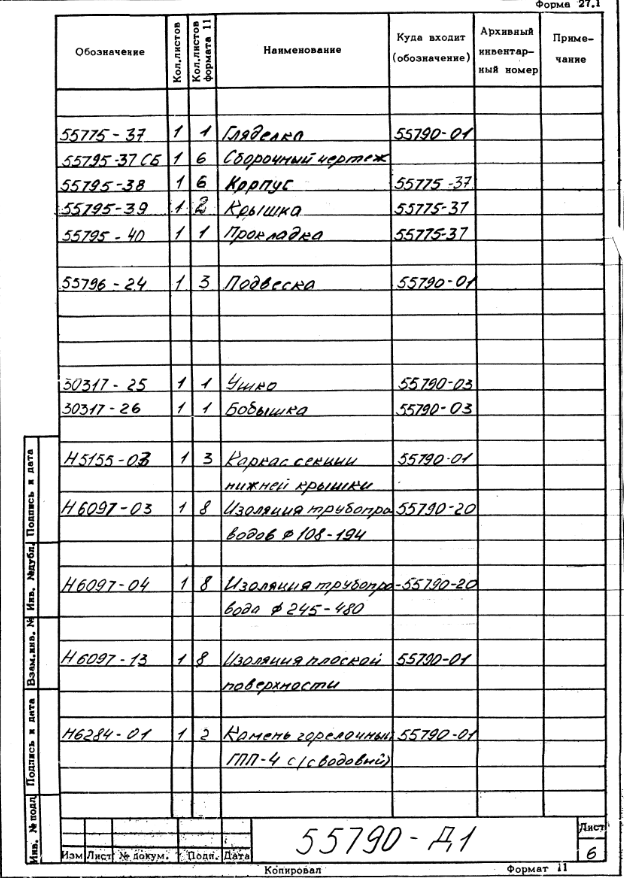 Форма 27.1
Обозначение | Кол.листов | Кол.листов формата 11 | Наименование | Куда входит (обозначение) | Архивный инвентарный номер | Примечание
55775-37 1 1 Гляделка 55790-01
55795-37 СБ 1 6 Сборочный чертеж
55795-38 1 6 Корпус 55775-37
55795-39 1 2 Крышка 55775-37
55795-40 1 1 Прокладка 55775-37
55796-24 1 3 Подвеска 55790-01
30317-25 1 1 Ушко 55790-03
30317-26 1 1 Бобышка 55790-03
Н5155-03 1 3 Каркас секции 55790-01
нижней крышки
Н6097-03 1 8 Изоляция трубопро 55790-20
водов ⌀108-194
Н6097-04 1 8 Изоляция трубопро- 55790-20
вода ⌀245-480
Н6097-13 1 8 Изоляция плоской 55790-01
поверхности
Н6284-01 1 2 Камень горелочный 55790-01
ГПП-4 с/сводовый)
Инв. № подл. Подпись и дата Взам.инв. № Инв. №дубл. Подпись и дата
55790-Д1
Лист
6
Изм Лист № докум. Подп. Дата
Копировал Формат 11